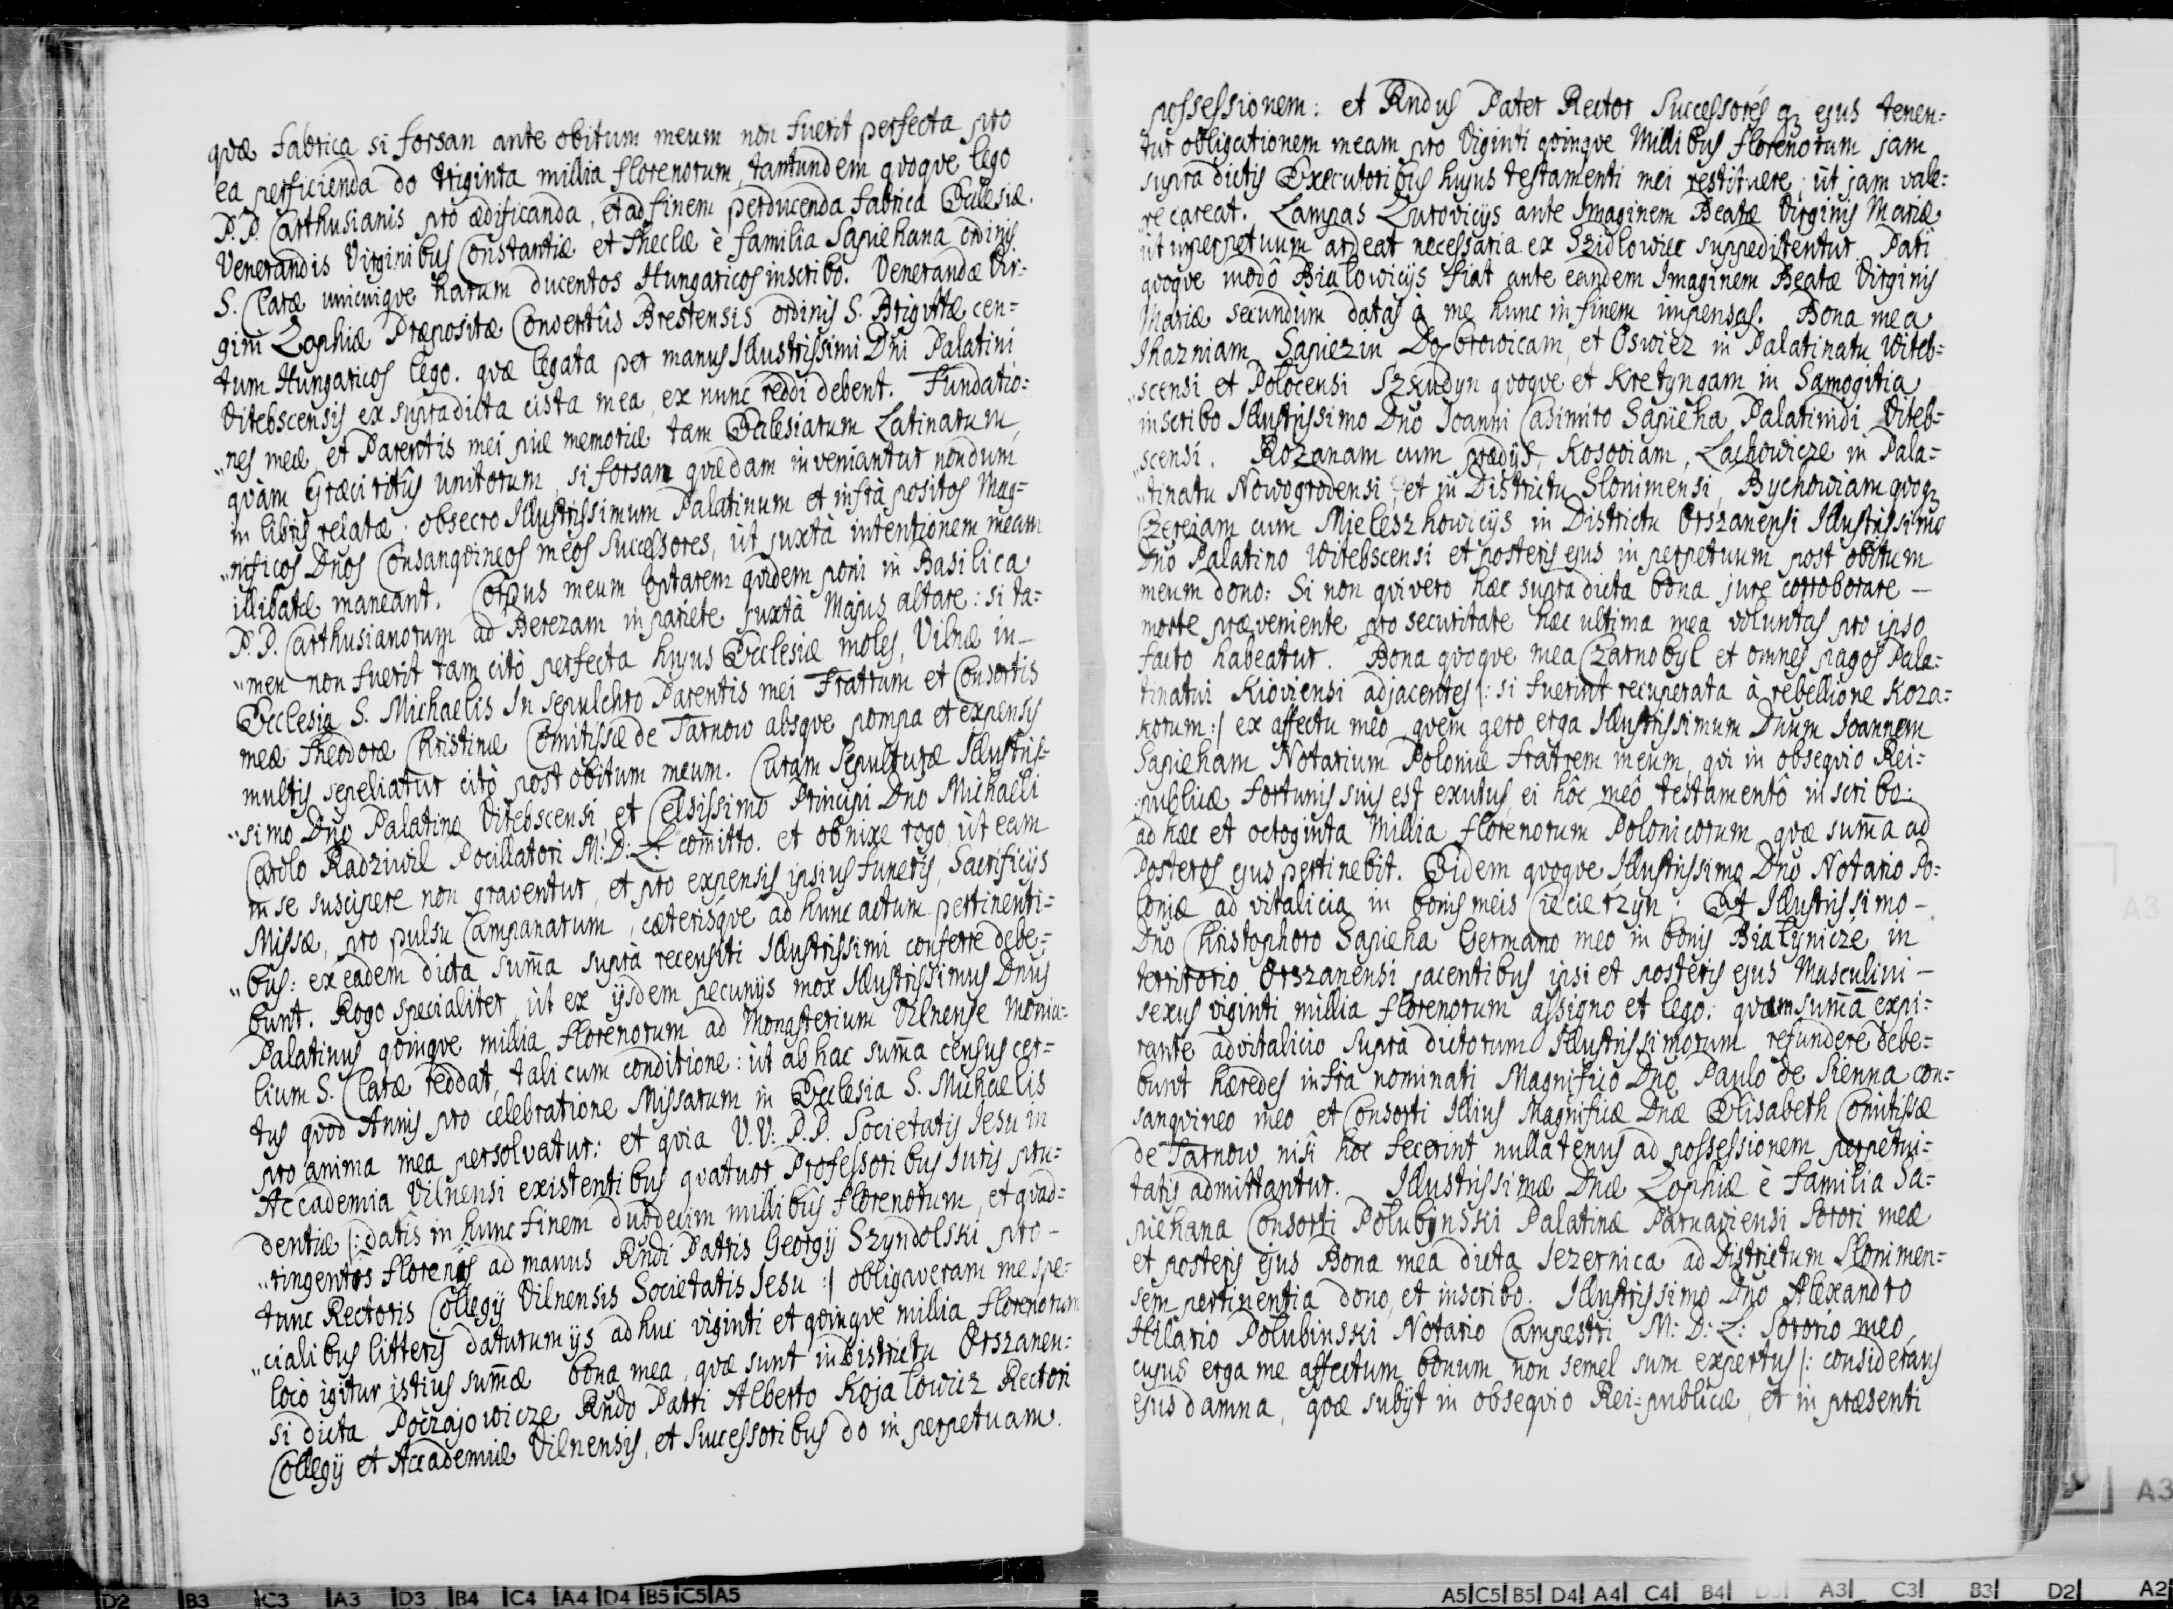 quæ fabrica si forsan ante obitum meum non fuerit perfecta pro
ea perficienda do triginta millia florenorum, tantundem quoque lego
P.P. Carthusianis pro ædificanda, et ad finem perducenda fabrica Ecclesiæ.
Venerandis Virginibus Constantiæ et Theclæ è familia Sapiehana ordinis
S. Claræ unicuique harum ducentos Hungaricos inscribo. Venerandæ Vir=
gini Zophiæ Præpositæ Conventûs Brestensis ordinis S. Brigittæ cen=
tum Hungaricos lego. quæ legata per manus Illustrissimi Dñi Palatini
Vitebscensis ex supradicta cista mea, ex nunc reddi debent. Fundatio=
nes meæ et Parentis mei piæ memoriæ tam Ecclesiarum Latinarum,
quàm Græci ritûs unitorum, si forsan quædam inveniantur nondum
in libris relatæ: obsecro Illustrissimum Palatinum et infrà positos Mag=
nificos Dños Consanqvineos meos Successores, ùt juxtà intentionem meam
illibatæ maneant. Corpus meum optarem quidem poni in Basilica
P.P. Carthusianorum ad Berezam in pariete juxtà Majus altare: si ta=
men non fuerit tam citò perfecta hujus Ecclesiæ moles, Vilnæ in-
Ecclesia S. Michaelis In sepulchro Parentis mei Fratrum et Consortis
meæ Theodoræ Christinæ Comitissæ de Tarnow absque pompa et expensis
multis sepeliatur citò post obitum meum. Curam Sepulturæ Illustris=
simo Dño Palatino Vitebscensi, et Celsissimo Principi Dno Michaeli
Carolo Radziwil Pocillatori M:D:L: com̃itto. et obnixe rogo, ùt eam
in se suscipere non graventur, et pro expensis ipsius funeris, Sacrificijs
Missæ, pro pulsu Campanarum, cæterisque ad hunc actum pertinenti=
bus: ex eadem dicta sum̃a suprà recensiti Illustrissimi conferre debe=
bunt. Rogo specialiter, ùt ex ijsdem pecunijs mox Illustrissimus Dñus
Palatinus quinque millia florenorum ad Monasterium Vilnense Monia=
lium S. Claræ reddat, tali cum conditione: ùt ab hac sum̃a census cer=
tus quod Annis pro celebratione Missarum in Ecclesia S. Michaelis
pro anima mea persolvatur: et quia V.V. P.P. Societatis Jesu in
Accademia Vilnensi existentibus quatuor Professoribus Juris pru=
dentiæ /: datis in hunc finem duodecim millibus florenorum, et quad=
ringentos florenis ad manus Rñdi Patris Georgij Szyndolski pro-
tunc Rectoris Collegij Vilnensis Societatis Jesu :/ obligaveram me spe=
cialibus litteris daturum ijs adhuc viginti et quinque millia florenorum
loco igitur istius sum̃æ bona mea, quæ sunt in Districtu Orszanen=
si dicta Poczajowicze Rñdo Patri Alberto Kojalowicz Rectori
Collegij et Accademiæ Vilnensis, et Successoribus do in perpetuam.
possessionem: et Rndus Pater Rector Successores q3 ejus tenen=
tur obligationem meam pro viginti quinque Millibus florenorum jam
supra dictis Executoribus hujus testamenti mei restituere, ùt jam vale=
re careat. Lampas Zurovicijs ante Imaginem Beatæ Virginis Mariæ
ùt in perpetuum ardeat necessaria ex Szidlowiec suppeditentur. Pari
quoque modô Bialowicijs fiat ante eandem Imaginem Beatæ Virginis
Mariæ secundùm datas à me hunc in finem impensas. Bona mea
Ikazniam, Sapiezin Dąbrowicam, et Oswiez in Palatinatu Viteb=
scensi et Polocensi Szkudyn quoque et Kretyngam in Samogitia
inscribo Illustrissimo Dño Joanni Casimiro Sapieha Palatinidi Viteb=
scensi. Rozanam cum prædijs, Kosoviam, Lachowicze in Pala=
tinatu Nowogrodensi, et in Districtu Slonimensi, Bychowiam quoq3
Czereiam cum Mieleszkowicijs in Districtu Orszanensi Illustrissimo
Dño Palatino Witebscensi et posteris ejus in perpetuum post obitum
meum dono: Si non qvivero hæc supradicta bona jure corroborare -
morte præveniente pro securitate hæc ultima mea voluntas pro ipso
facto habeatur. Bona quoque mea Czarnobyl et omnes pagos Pala=
tinatui Kioviensi adjacentes /: si fuerint recuperata à rebellione Koza=
korum :/ ex affectu meo, quem gero erga Illustrissimum Dnum Joannem
Sapieham Notarium Poloniæ fratrem meum, qvi in obsequio Rei=
publicæ fortunis suis est exutus, ei hôc meô testamentô inscribo:
ad hæc et octoginta Millia florenorum Polonicorum, quæ sum̃a ad
Posteros ejus pertinebit. Eidem quoque Illustrissimo Dñо Notario Po=
loniæ ad vitalicia in bonis meis Cieciertzyn: Et Illustrissimo -
Dno Christophoro Sapieha Germano meo in bonis Bialynicze in
territorio Orszanensi jacentibus ipsi et posteris ejus Musculini -
sexus viginti millia florenorum assigno et lego: quam sum̃a expi=
rante advitalicio suprà dictorum Illustrissimorum refundere debe=
bunt hæredes infrà nominati Magnifico Dño Paulo de Sienna con=
sanqvineo meo et Consorti Illius Magnificæ Dnæ Elisabeth Comitissæ
de Tarnow, nisi hoc fecerint nullatenus ad possessionem perpetui=
tatis admittantur. Illustrissimæ Dnæ Zophiæ è familia Sa=
piehana Consorti Polubinski Palatinæ Parnaviensi Sorori meæ
et posteris ejus Bona mea dicta Jezernica ad Districtum Slonimen=
sem pertinentia dono, et inscribo. Illustrissimo Dño Alexandro
Hilario Polubinski Notario Campestri M: D: L: Sororio meo,
cujus erga me affectum bonum non semel sum expertus /: considerans
ejus damna, quæ subijt in obsequio Rei=publicæ, et in præsenti
A2 D2 B3 C3 A3 D3 B4 C4 A4 D4 B5 C5 A5
A5 C5 B5 D4 A4 C4 B4 A3 C3 B3 D2 A2
A3